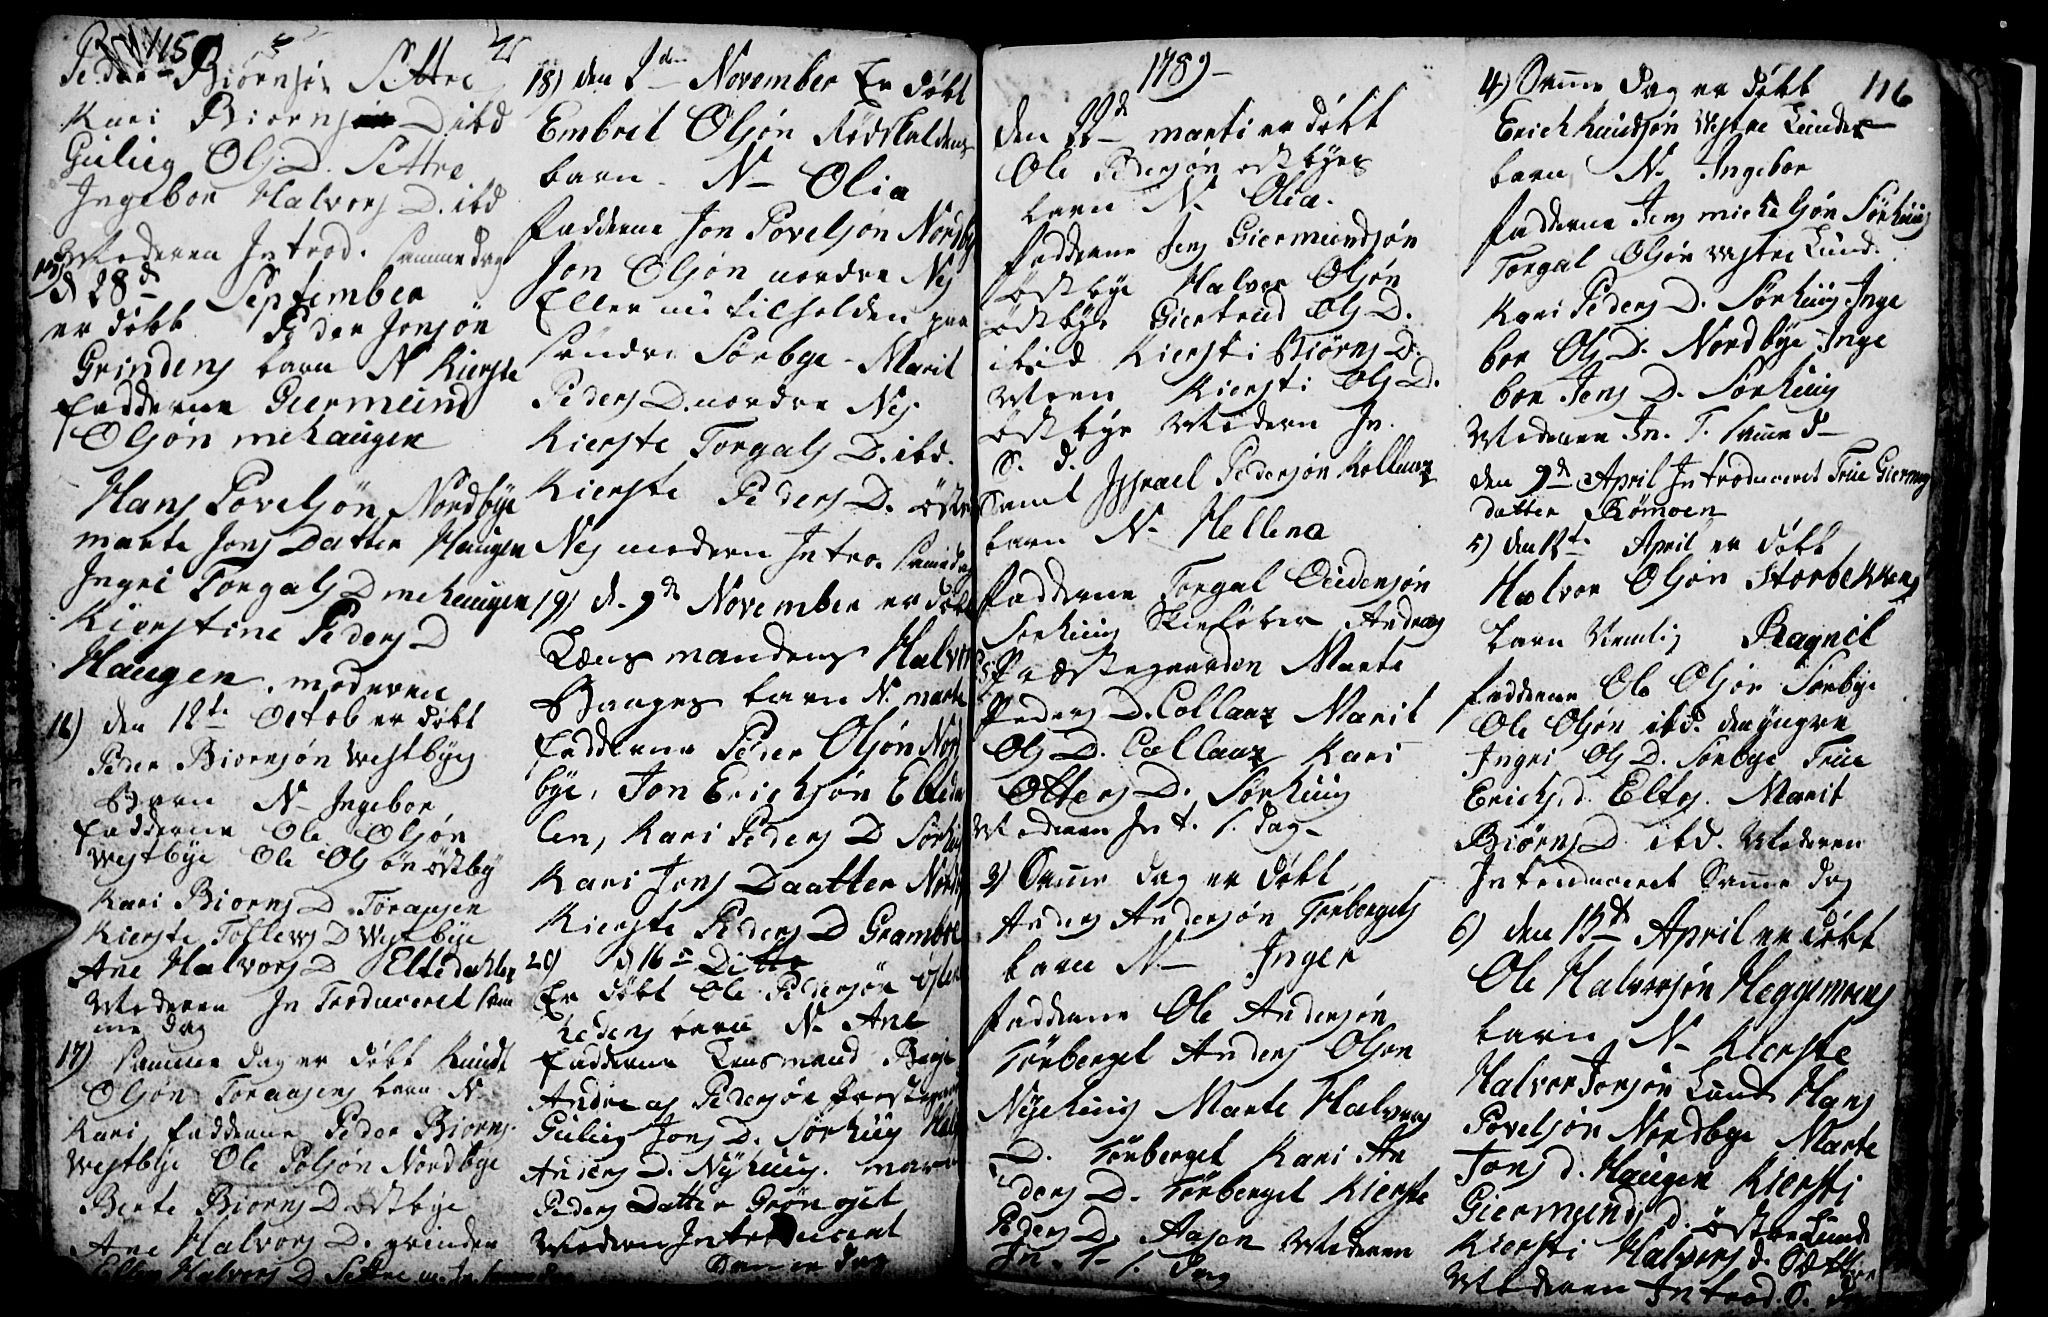 115
Peder Biørnsøn Settre
Kari Biørns D ibd
Guliig Ols D. Settre
Ingebor Halvors D. ibd
Moderen Introd. samme dag
15) d 28d September
er døbt Peder Jonsøn
Grindens barn N Kierste
Fadderne Giermund
Olsøn mehaugen
Hans Povelsøn Nordbye
marte Jons Datter Haugen
Ingri Torgals D mehaugen
Kierstine Peders D
Haugen. moderen
16) den 12te Octob er døbt
Peder Biørnsøn Westbyes
Barn N Ingebor
Fadderne Ole Olsøn
Westbye Ole Olsøn østby
Kari Biørns D Toraasen
Kierste Tollevs D Westbye
Ane Halvors D Eltedahlen
Moderen Introduceret sam
me dag
17) samme dag er døbt Knudt
Olsøn Toraasens barn N
Kari Fadderne Peder Biørns
Westbye Ole Polsøn Nordbye
Berte Biørns D østbye
Ane Halvors D. grinden
Ellen Halvors D Settre m. In samme dag
18) den 2den November Er døbt
Embret Olsøn Rødskaldens
barn N Olia
Fadderne Jon Povelsøn Nordby
Jon Olsøn nordre Nes
Eller nu tilholden paa
søndre Sørbye - Marit
Peders D. nordre Nes
Kierste Torgals D. ibd.
Kierste Peders D. østre
Nes modern Intro. samedag
19) d. 9de November er døbt
Lens mandens Halvor
Baages barn N. marte
Fadderne Peder Olsøn Nord
bye, Jon Erichsøn Elteda
len, Kari Peders D Sørhuus
Kari Jons Daatter Nordby
Kierste Peders D Gramboe
20) d 16de Ditto
Er døbt Ole Pedersøn Øster
hedens barn N. Ane
Fadderne Lensmand Baage
Andreas Pedersøn Præstegaar
Guliig Jons D. Sørhuus
Anders D. Nyhuus.
Peders Datter Grønoset
Modern Introduceret
Samme dag
1789
den 22d marti er døbt
Ole Pedersøn østbyes
barn N. Olia.
Fadderne Jens Giermundsøn
Østbye Halvor Olsøn
østbye Giertrud Ols D.
ibid Kiersti Biørns D.
Moen Kiersti Ols D.
østbye Modern In.
S. d.
Samt Issrael Pedersøn Kollanz
barn N. Hellena
Fadderne Torgal Oudensøn
Sørhuus Skieløber Andreas
Præstegaarden Marte
Peders D. Collanz Marit
Ols D. Collanz Kari
Otters D. Sørhuus
Moderen Int. s. dag
3) Samme dag er døbt
Anders Andersøn Tørbergets
barn N Inger
Fadderne Ole Andersøn
Tørberget Anders Olsøn
Nyehuus Marte Halvors
D. Tørberget Kari An
ders D. Tørberget Kierste
Peders D. Aasen Moderen
In. T. s. dag
116
4) Samme dag er døbt
Erich Knudsøn Westre Lundes
barn N. Ingebor
Fadderne Jens mickelsøn Sørhuus
Torgal Olsøn westre Lund.
Kari Peders D. Sørhuus Inge
bor Ols D. Nordbye Inge
bor Jens D. Sørhuus
Moderen In. T. samme d
den 9d April Introduceret True Giermunds
datter Rømoen
5) den 12te April er døbt
Halvor Olsøn Storbekkens
barn Nemlig Ragnil
Fadderne Ole Olsøn Sørbye
Ole Olsøn ibd. den yngre
Ingri Ols D. Sørbye True
Erichs. d. Eltes. Marit
Biørns D ibd. Moderen
Introduceret Samme dag
6) den 13d April er døbt
Ole Halvorsøn Heggemoens
barn N. Kierste
Halvor Jonsøn Lund Hans
Povelsøn Nordbye Marte
Jons d. Haugen Kiersti
Giermunds d. Østre Lunde
Kiersti Halvors d. Sættre
Moderen Introd. S. d